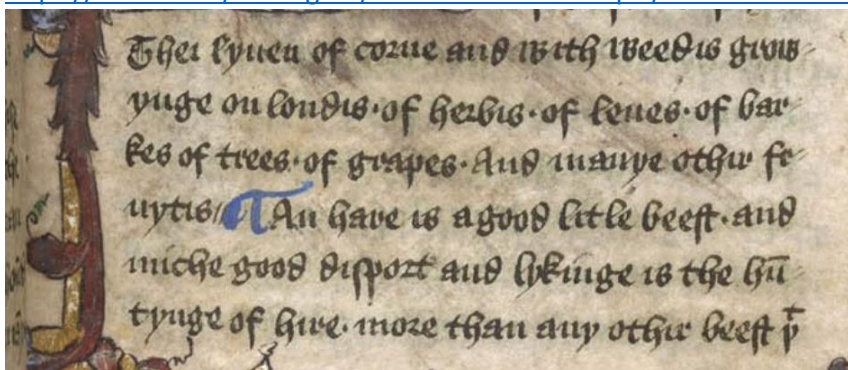 Thei lyuen of corne and with weedis grow-
ynge on londis · of herbis · of leues · of bar-
kes of trees · of grapes · And manye othir fr-
uytis // ¶ An hare is a good litle beest · and
miche good disport and lykinge is the hū-
tynge of hire · more than any othir beest